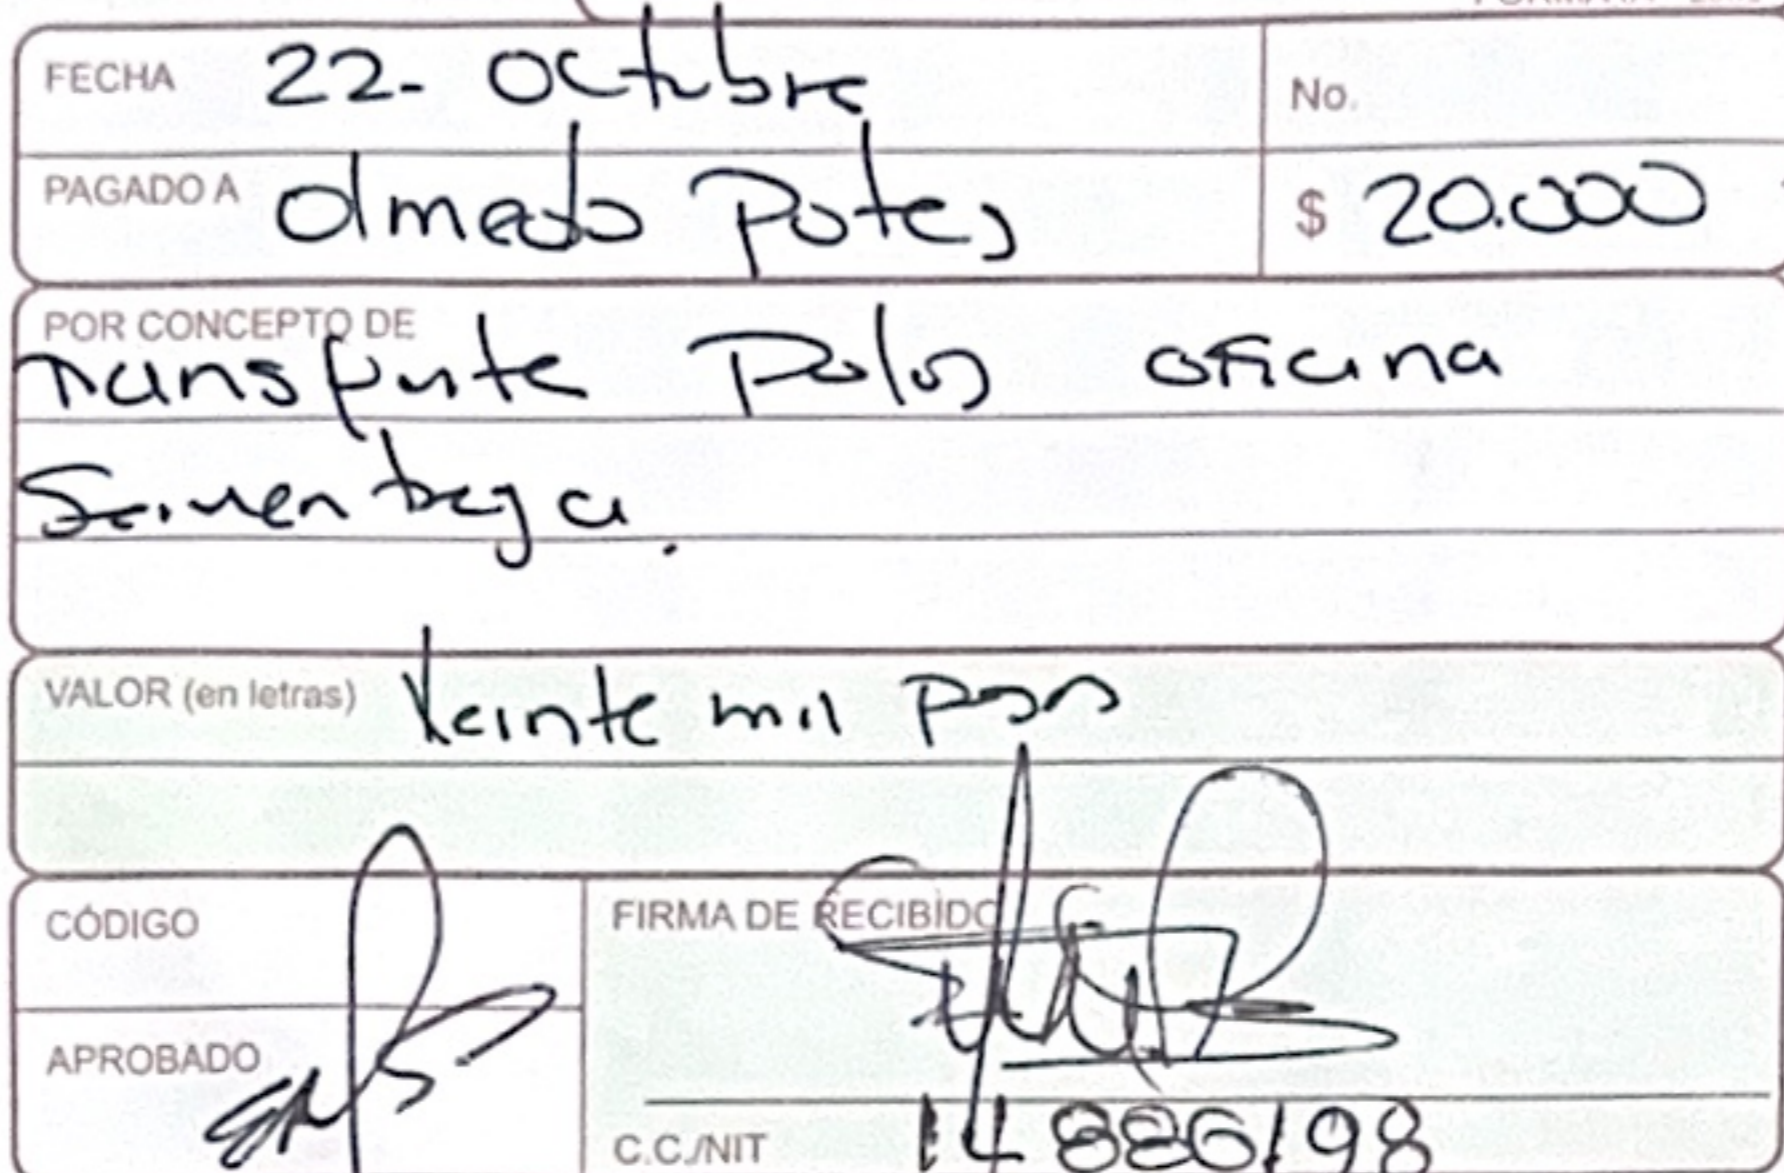 FECHA 22- Octubre No.
PAGADO A Olmedo Potes $ 20.000
POR CONCEPTO DE
Transporte Polos oficina
VALOR (en letras) Veinte mil pesos
CÓDIGO FIRMA DE RECIBIDO
APROBADO
C.C./NIT 14886198